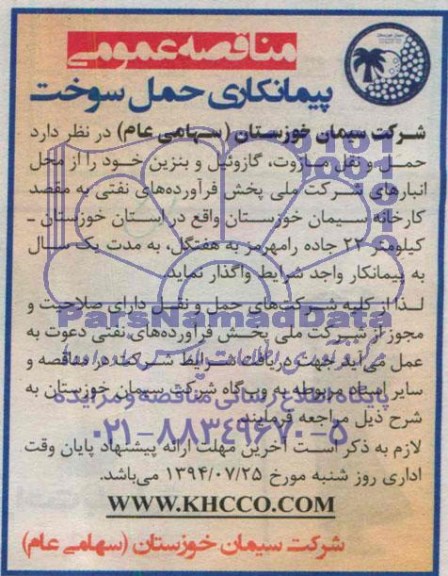 مناقصه عمومی
پیمانکاری حمل سوخت
شرکت سیمان خوزستان (سهامی عام) در نظر دارد
حمل و نقل مازوت، گازوئیل و بنزین خود را از محل
انبارهای شرکت ملی پخش فرآورده‌های نفتی به مقصد
کارخانه سیمان خوزستان واقع در استان خوزستان ـ
کیلومتر ۲۲ جاده رامهرمز به هفتگل، به مدت یک سال
به پیمانکار واجد شرایط واگذار نماید.
لذا از کلیه شرکت‌های حمل و نقل دارای صلاحیت و
مجوز از شرکت ملی پخش فرآورده‌های نفتی دعوت به
عمل می‌آید جهت دریافت شرایط شرکت در مناقصه و
سایر اسناد مربوطه به وبگاه شرکت سیمان خوزستان به
شرح ذیل مراجعه فرمایند.
لازم به ذکر است آخرین مهلت ارائه پیشنهاد پایان وقت
اداری روز شنبه مورخ ۱۳۹۴/۰۷/۲۵ می‌باشد.
WWW.KHCCO.COM
شرکت سیمان خوزستان (سهامی عام)
ParsNamadData
پایگاه اطلاع رسانی مناقصه و مزایده
۰۲۱-۸۸۳۴۹۶۷۰-۵